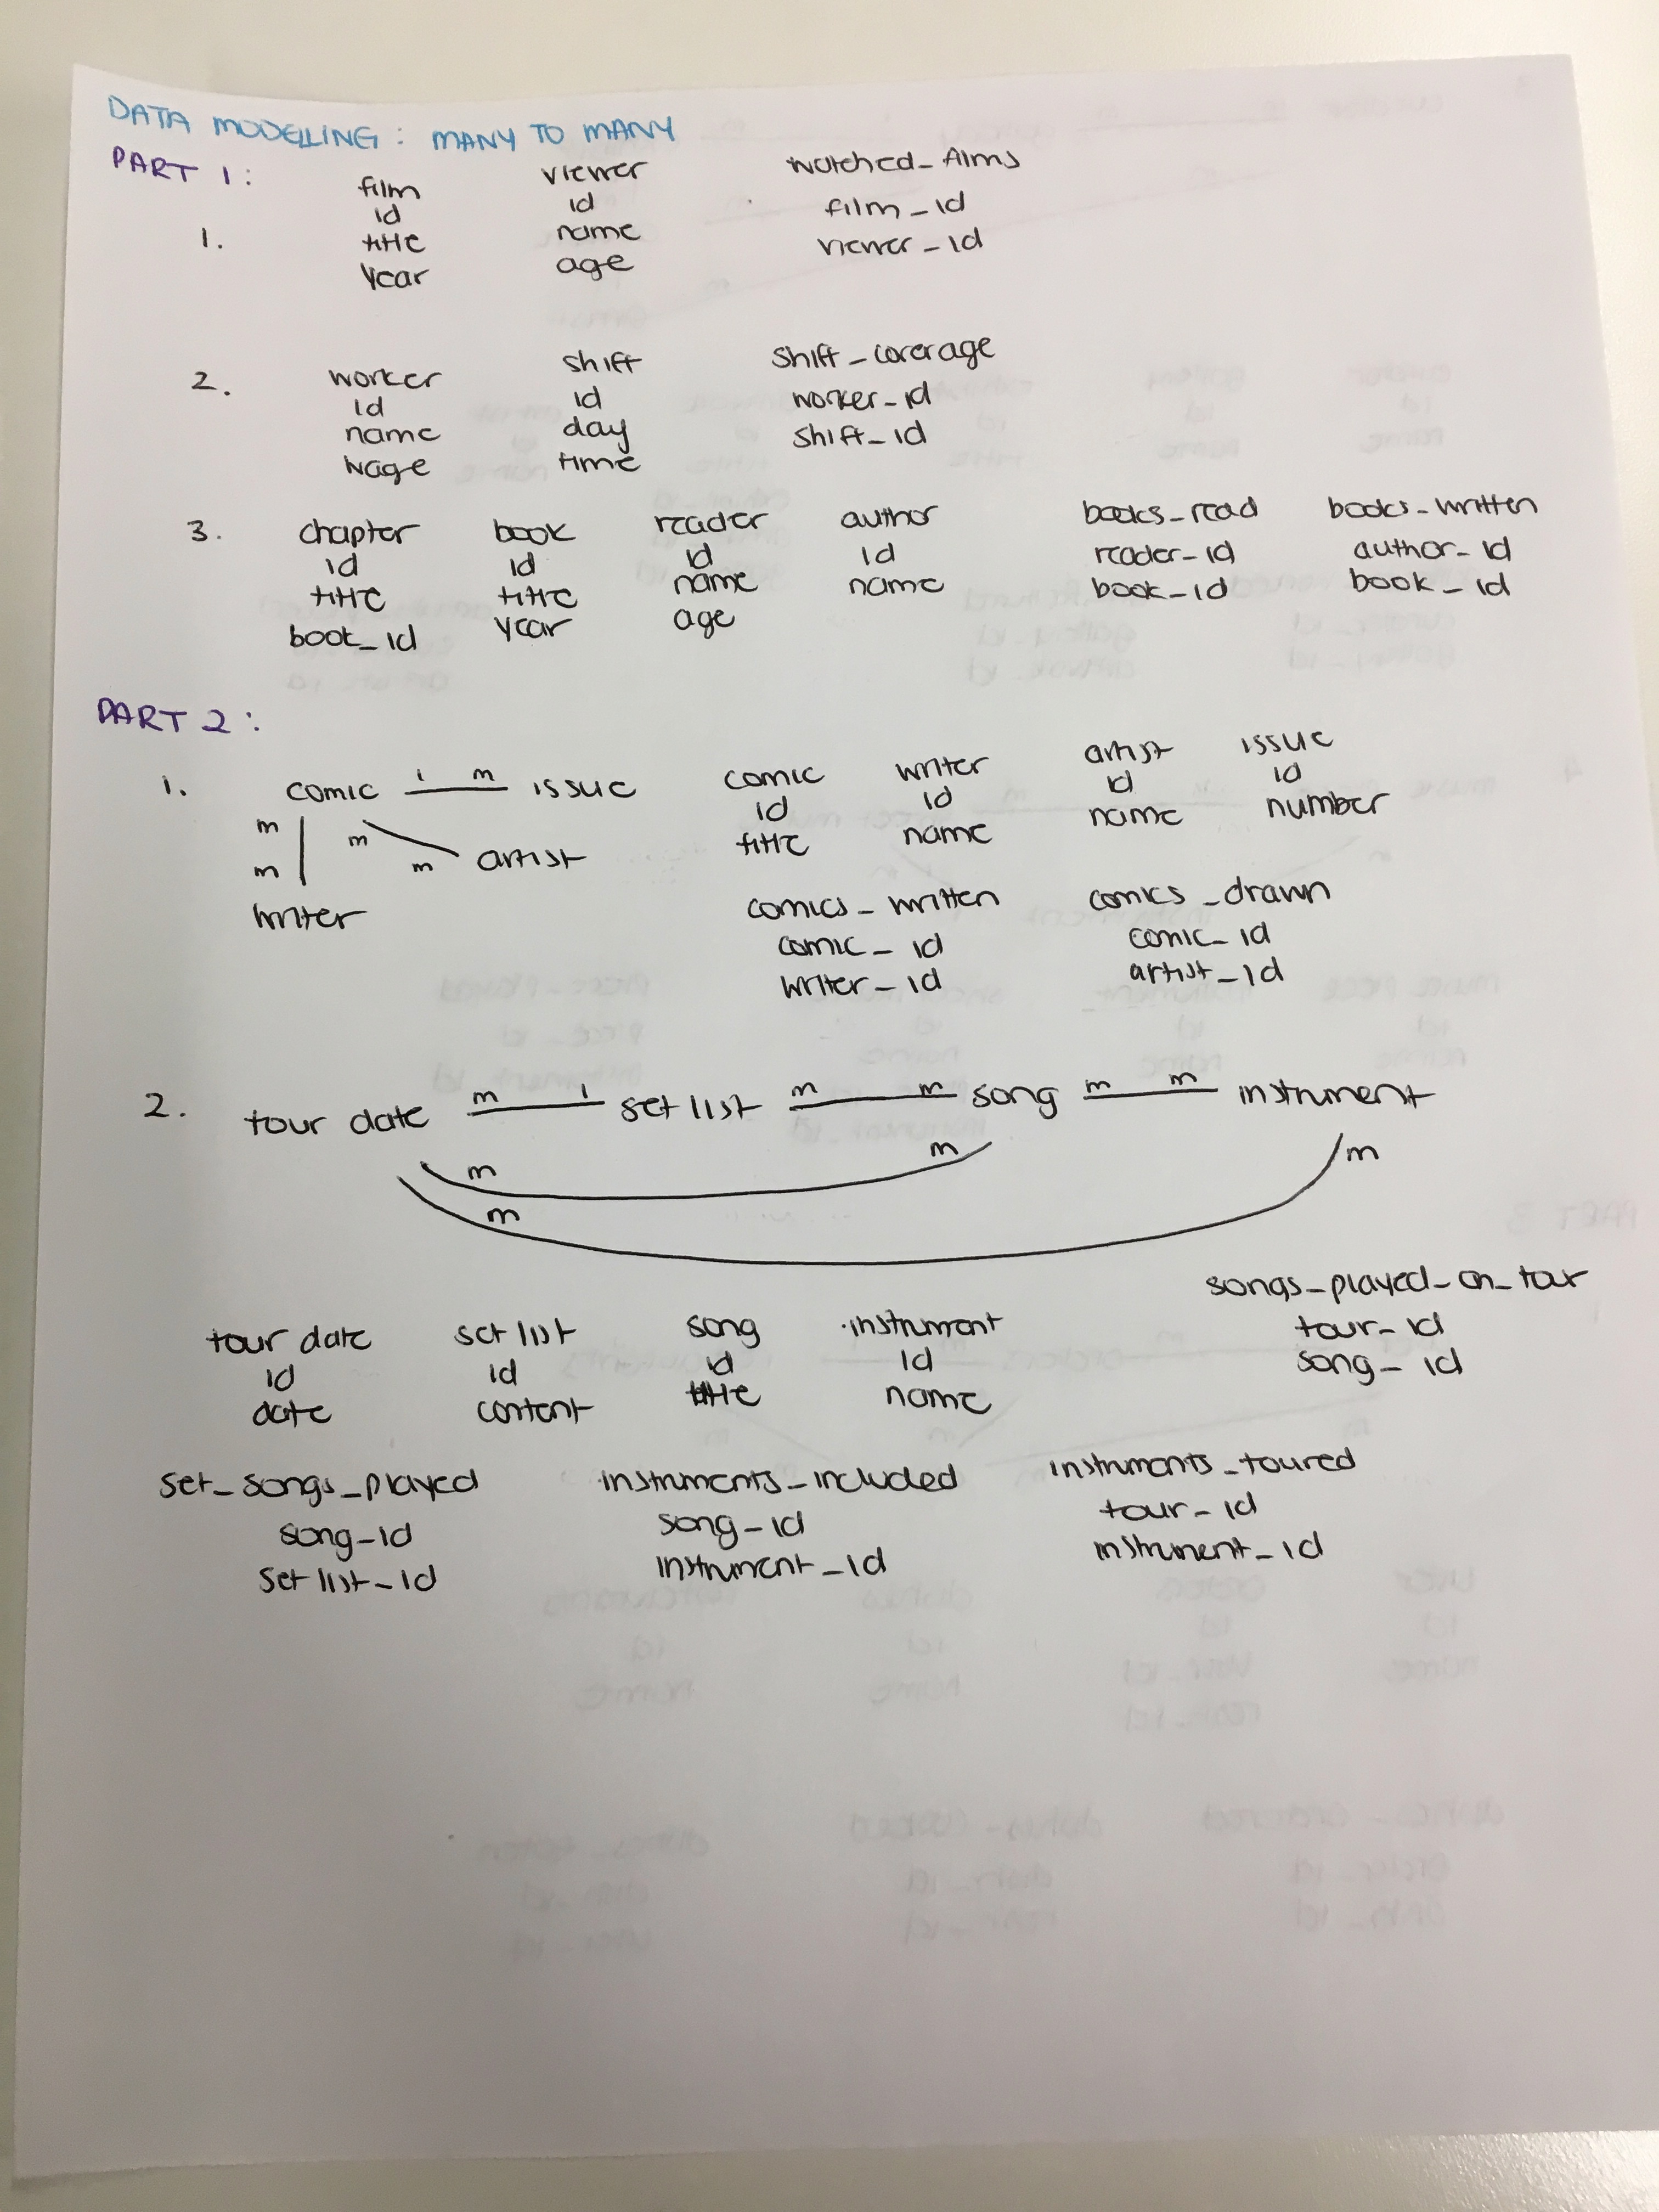 DATA MODELLING: MANY TO MANY
PART 1:
1.
film
id
title
year
viewer
id
name
age
watched_films
film_id
viewer_id
2.
worker
id
name
wage
shift
id
day
time
shift_coverage
worker_id
shift_id
3.
chapter
id
title
book_id
book
id
title
year
reader
id
name
age
author
id
name
books_read
reader_id
book_id
books_written
author_id
book_id
PART 2:
1.
comic 1 m issue
m m
m m artist
writer
comic
id
title
writer
id
name
artist
id
name
issue
id
number
comics_written
comic_id
writer_id
comics_drawn
comic_id
artist_id
2.
tour date m 1 set list m m song m m instrument
m m
m m
tour date
id
date
set list
id
content
song
id
title
instrument
id
name
songs_played_on_tour
tour_id
song_id
set_songs_played
song_id
set list_id
instruments_included
song_id
instrument_id
instruments_toured
tour_id
instrument_id